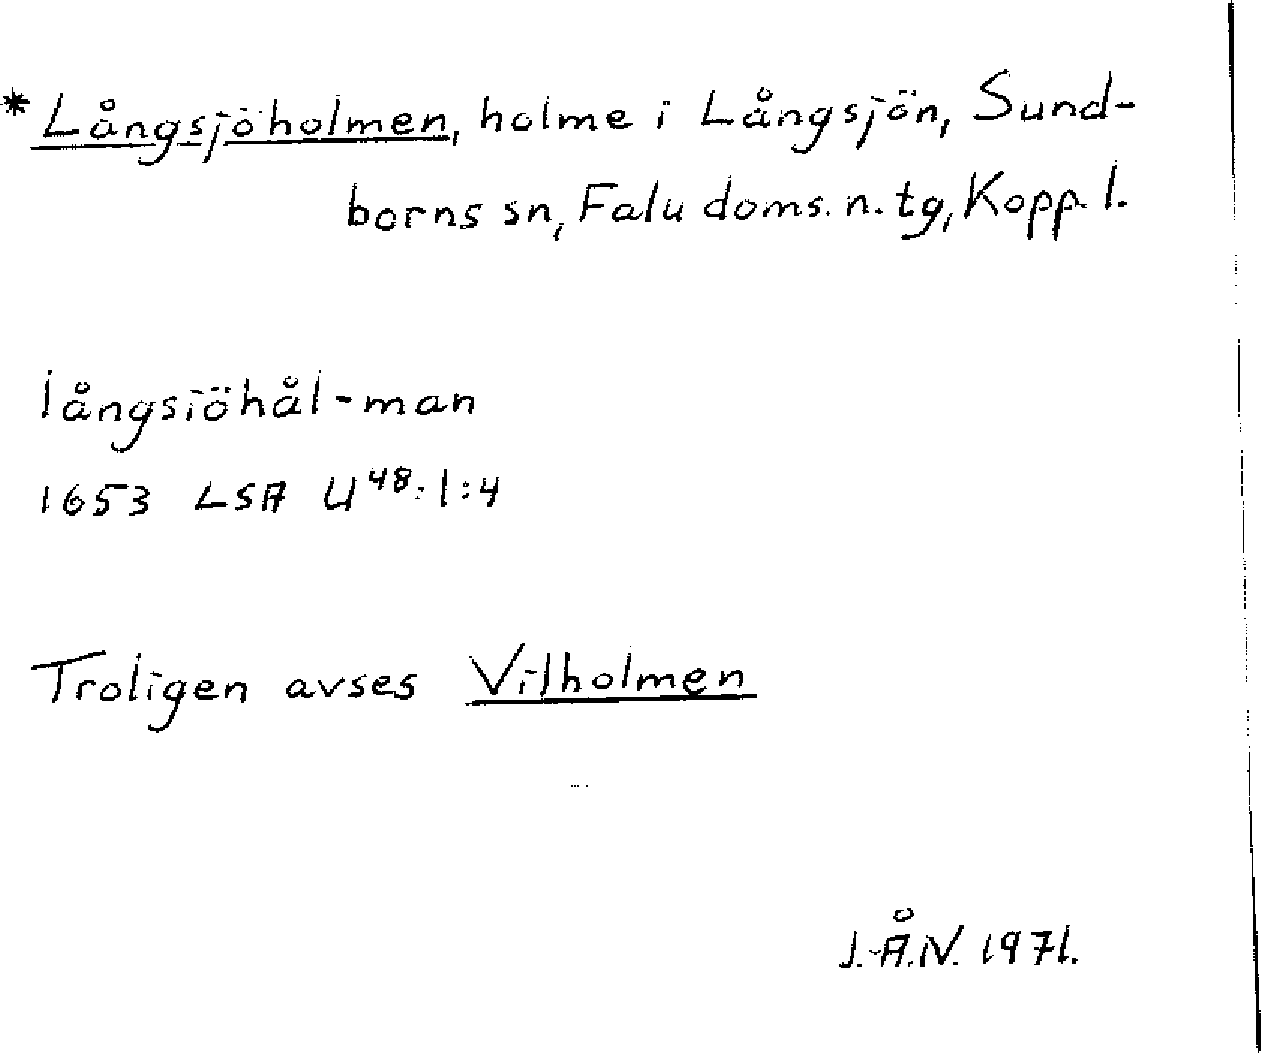 * Långsjöholmen, holme i Långsjön, Sund-
borns sn, Falu doms. n. tg, Kopp. l.
långsiöhål-man
1653 LSA U⁴⁸:1:4
Troligen avses Vilholmen
J.-Å.N. 1971.